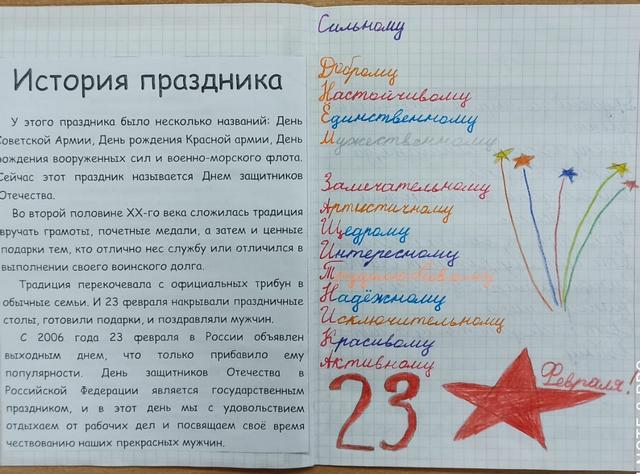 История праздника
У этого праздника было несколько названий: День
Советской Армии, День рождения Красной армии, День
рождения вооруженных сил и военно-морского флота.
Сейчас этот праздник называется Днем защитников
Отечества.
Во второй половине XX-го века сложилась традиция
вручать грамоты, почетные медали, а затем и ценные
подарки тем, кто отлично нес службу или отличился в
выполнении своего воинского долга.
Традиция перекочевала с официальных трибун в
обычные семьи. И 23 февраля накрывали праздничные
столы, готовили подарки, и поздравляли мужчин.
С 2006 года 23 февраля в России объявлен
выходным днем, что только прибавило ему
популярности. День защитников Отечества в
Российской Федерации является государственным
праздником, и в этот день мы с удовольствием
отдыхаем от рабочих дел и посвящаем своё время
чествованию наших прекрасных мужчин.
Сильному
Доброму
Настойчивому
Единственному
Мужественному
Замечательному
Артистичному
Щедрому
Интересному
Трудолюбивому
Надёжному
Исключительному
Красивому
Активному
23 Февраля!